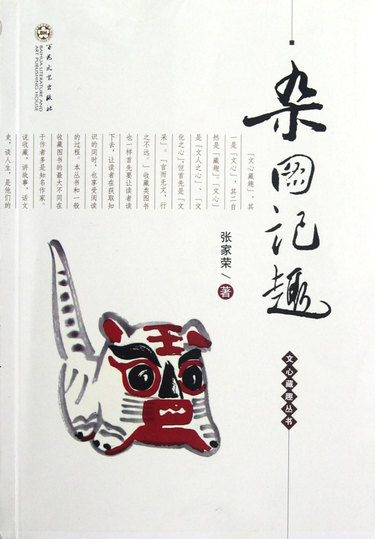 百花文艺出版社
BAIHUA LITERATURE AND
ART PUBLISHING HOUSE
杂图记趣
张家荣/著
文心藏趣丛书
「文心藏趣」,其
一是「文心」,其二自
然是「藏趣」。「文心」
是「文人之心」、「文
化之心」,但首先是「文
采」。「言而无文,行
之不远。」收藏类图书
也一样首先要让读者读
下去,让读者在获取知
识的同时,也享受阅读
的过程。本丛书和一般
收藏图书的最大不同在
于作者多是知名作家。
说收藏,讲故事,话文
史,谈人生,是他们的
王